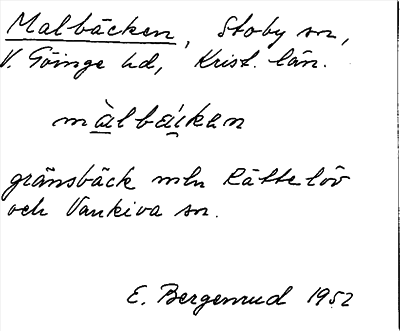 Malbäcken, Stoby sn,
V. Göinge hd, Krist. län.
màlbäcken
gränsbäck mln Rättelöv
och Vankiva sn.
E. Bergenrud 1952